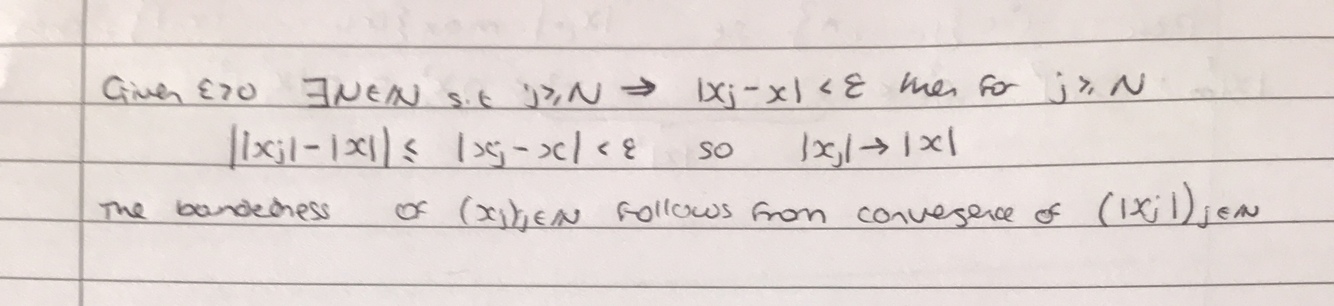 Given ε>0 ∃N∈ℕ s.t j≥N ⇒ |xj-x|<ε then for j≥N
||xj|-|x||≤ |xj-x|<ε so |xj|→|x|
The bondedness of (xj)j∈ℕ follows from convergence of (|xj|)j∈ℕ